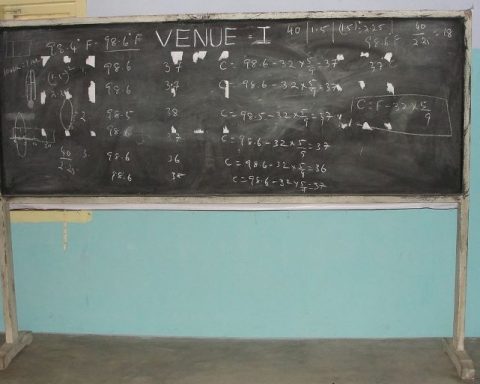 98.4° F - 98.6° F VENUE - I 40 | 1.5 | (1.5)² 2.25 | 40 = 18
98.6 F
98.6 37 C = 98.6 - 32 × 5/9 = 37 37
98.6 C = 98.6 - 32 × 5/9 = 37
98.5 38 C = 98.5 - 32 × 5/9 = 37 C = F - 32 × 5/9
98.6 7 C = 98.6 - 32 × 5/9 = 37
98.6 36 C = 98.6 - 32 × 5/9 = 36
98.6 C = 98.6 - 32 × 5/9 = 37